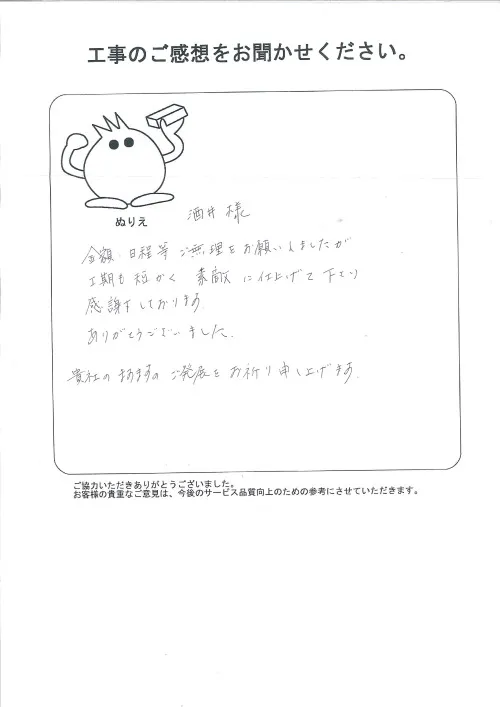 工事のご感想をお聞かせください。
ぬりえ
酒井 様
金額・日程等 ご無理をお願いしましたが
工期も短かく 素敵に仕上げて下さり
感謝しております。
ありがとうございました。
貴社のますますのご発展をお祈り申し上げます。
ご協力いただきありがとうございました。
お客様の貴重なご意見は、今後のサービス品質向上のための参考にさせていただきます。